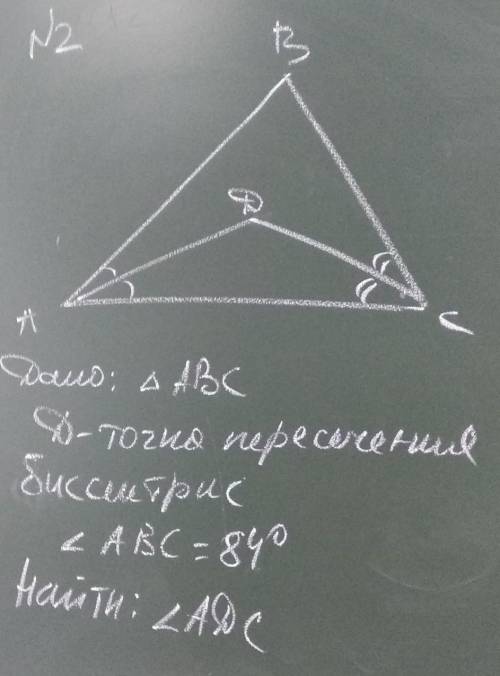 N2
B
D
A
C
Дано: △ ABC
D-точка пересечения
биссектрис
∠ ABC = 84°
Найти: ∠ADC